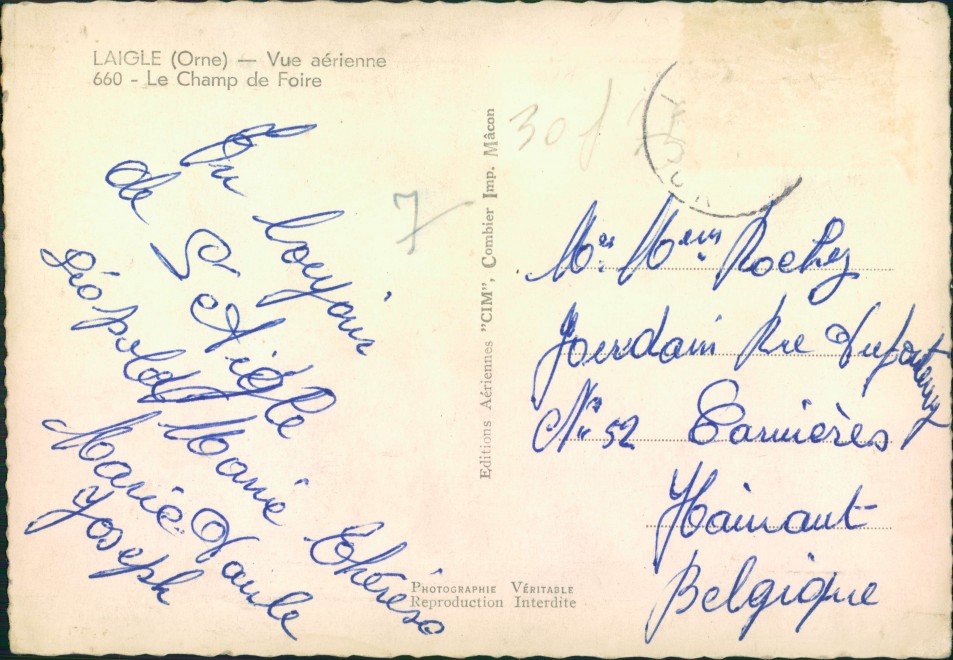 LAIGLE (Orne) — Vue aérienne
660 - Le Champ de Foire
Un boyjour
de L'Aigle
Léopold Marie Thérèse
Marie-Paule
Yoseph
7
30f
Editions Aériennes "CIM", Combier Imp. Mâcon
Mr. Mme Rochy
Jourdain Rue
N° 52 Carnières
Hainaut
Belgique
PHOTOGRAPHIE VÉRITABLE
Reproduction Interdite